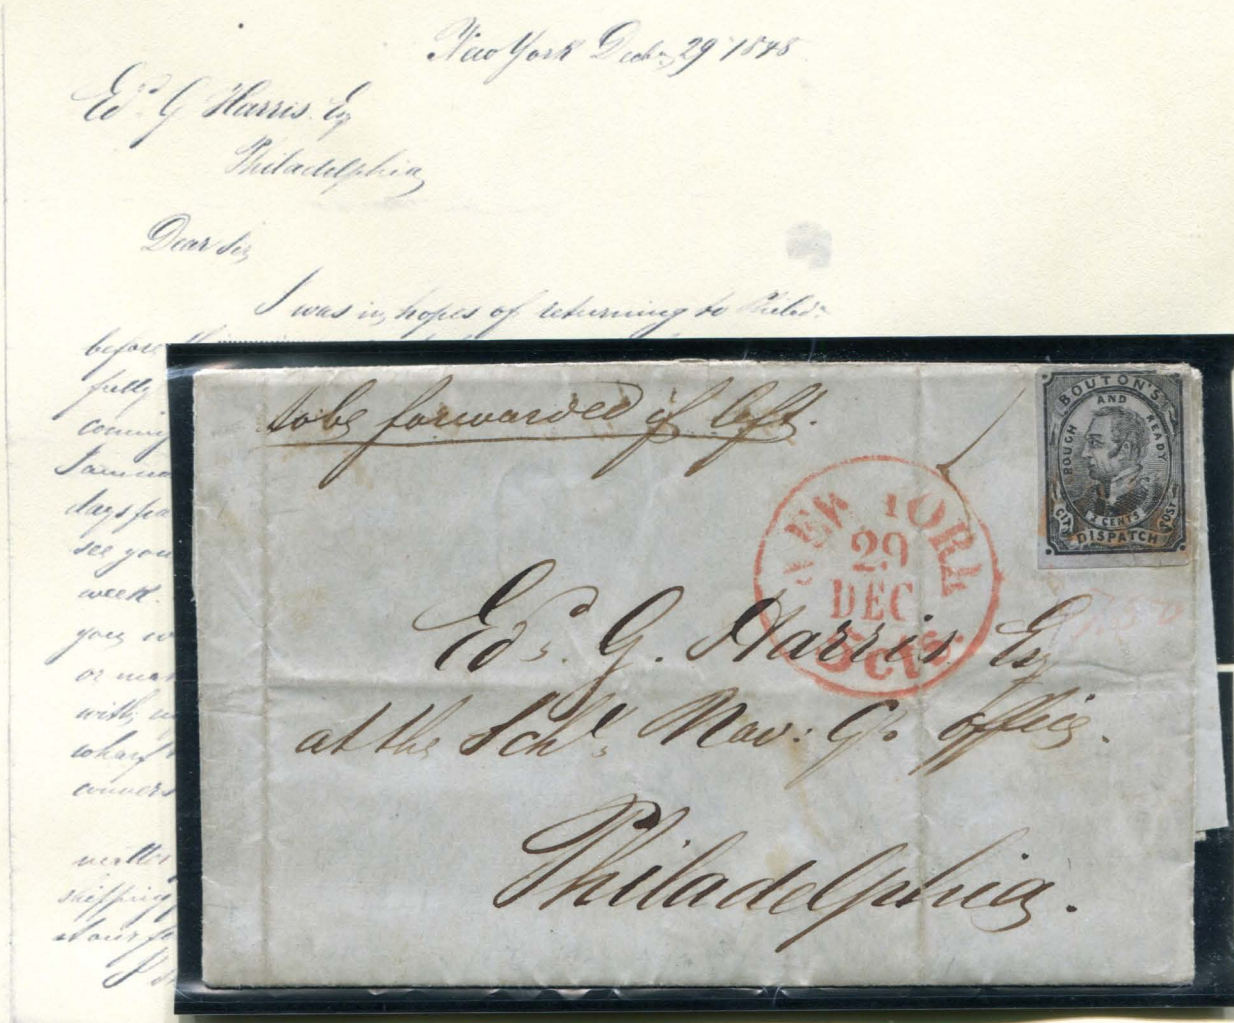 New York Decbr 29 1848
Edd G Harris Esq
Philadelphia
Dear Sir
I was in hopes of returning to Philada
before
fully
coming
days
see you
week.
or
with
wharf
shipping
to be forwarded if left.
BOUTON'S
ROUGH AND READY
2 CENTS
CITY DISPATCH POST
NEW YORK
29
DEC
5 cts.
Edd. G. Harris Esq
at the Schl Nav: Co office.
Philadelphia.